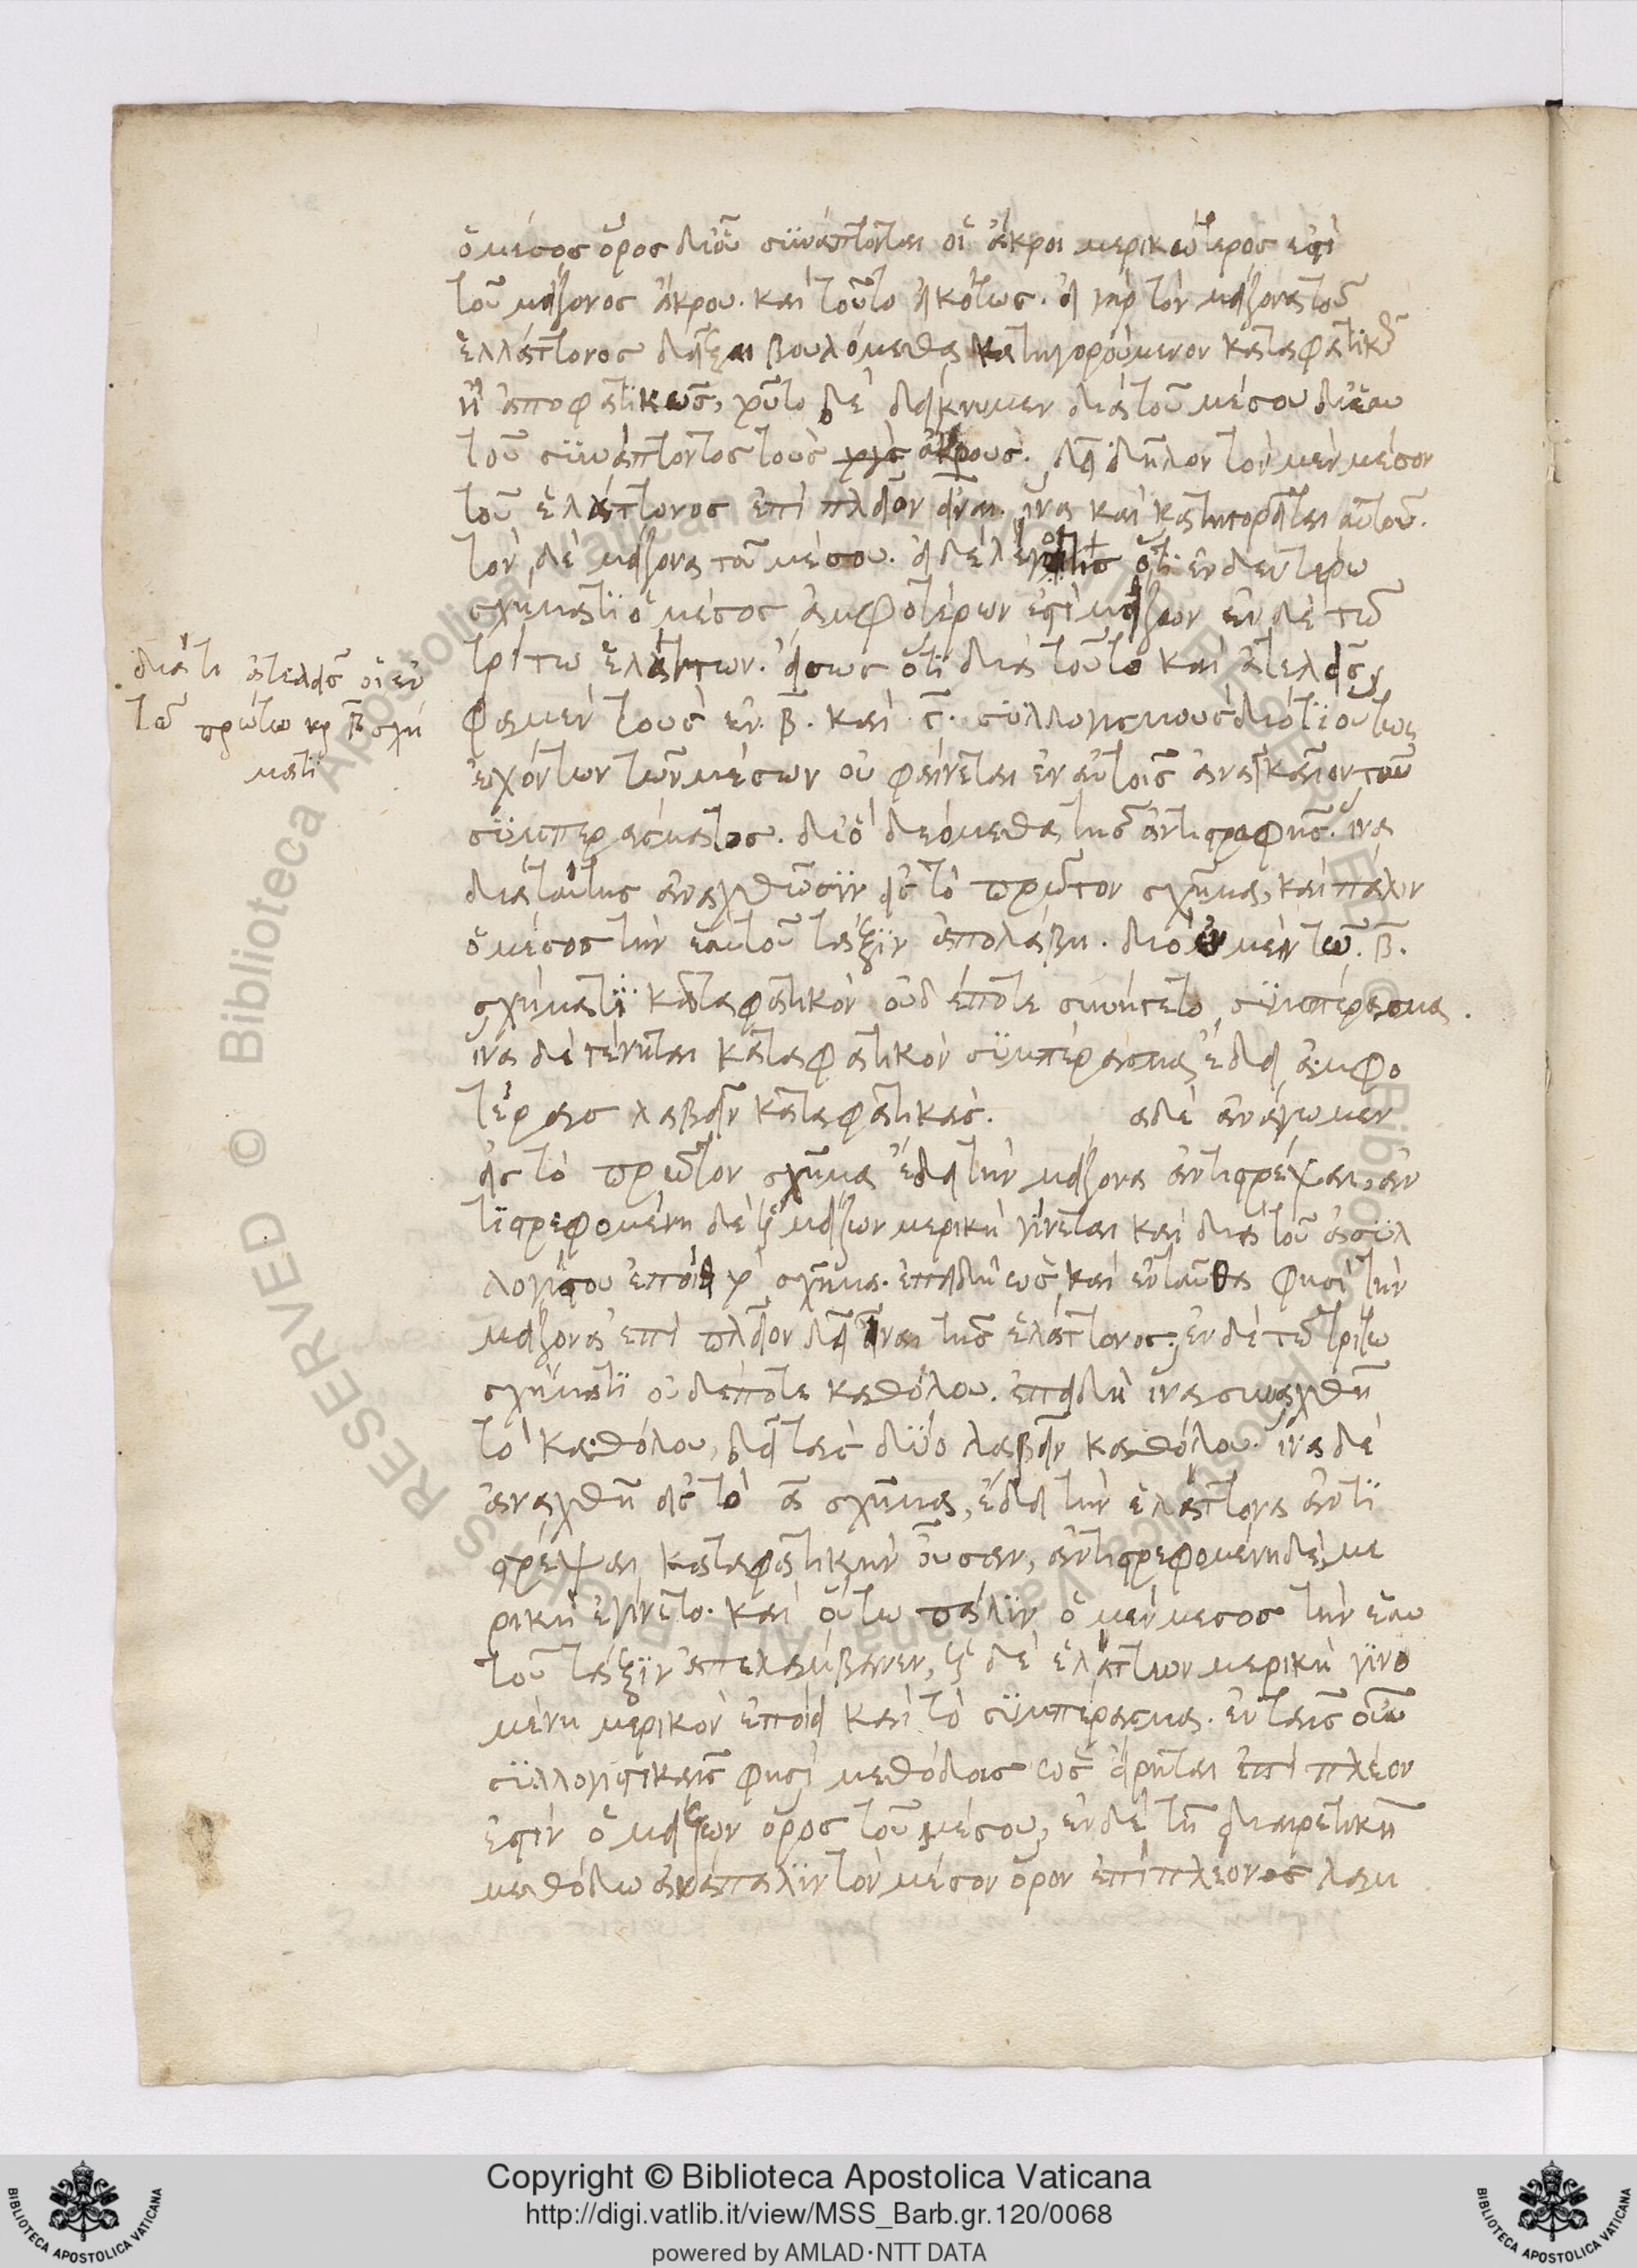 ὁ μέσος ὅρος δι οὗ συνάπτονται οἱ ἄκροι μερικώτερος ἐστὶ
τοῦ μείζονος ἄκρου. καὶ τοῦτο εἰκότως. εἰ γὰρ τὸν μείζονα τοῦ
ἐλλάττονος δεῖξαι βουλόμεθα κατηγορούμενον καταφατικῶς
ἢ ἀποφατικῶς, τοῦτο δὲ δείκνυμεν διὰ τοῦ μέσου διὰ
τοῦ συνάπτοντος τοὺς ἄκρους. δεῖ δηλονότι τὸν μὲν μέσον
τοῦ ἐλάττονος ἐπὶ πλεῖον εἶναι. ἵνα καὶ κατηγορεῖται αὐτοῦ.
τὸν δὲ μείζονα τοῦ μέσου. εἰ δὲ λέγοι τις ὅτι ἐν δευτέρω
σχήματι ὁ μέσος ἀμφοτέρων ἐστὶ μείζων ἐν δὲ τῶ
τρίτω ἐλάττων. ἴσως ὅτι διὰ τοῦτο καὶ ἀτελεῖς
φαμὲν τοὺς ἐν β. καὶ γ. συλλογισμοὺς διότι οὕτως
ἐχόντων τῶν μέσων οὐ φαίνεται ἐν αὐτοῖς ἀναγκαῖον τοῦ
συμπεράσματος. διὸ δεόμεθα τῆς ἀντιστροφῆς. ἵνα
διὰ ταύτης ἀναχθῶσιν εἰς τὸ πρῶτον σχῆμα, καὶ πάλιν
ὁ μέσος τὴν ἑαυτοῦ τάξιν ἀπολάβη. διὸ ἐν μὲν τῶ. β.
σχήματι καταφατικὸν οὐδέποτε συνήγετο συμπέρασμα.
ἵνα δὲ γένηται καταφατικὸν συμπέρασμα ἔδει ἀμφο
τέρας λαβεῖν καταφατικάς. ἀδὲ ἀνάγωμεν
εἰς τὸ πρῶτον σχῆμα ἔδει τὴν μείζονα ἀντιστρέψαι, ἀν
τιστρεφομένη δὲ ἡ μείζων μερικὴ γίνεται καὶ διὰ τοῦ ἀσυλ
λογίστου ἐποίει τὸ σχῆμα. ἐπειδὴ ὡς καὶ ἐνταῦθα φησὶ τὴν
μείζονα ἐπὶ πλεῖον δεῖ εἶναι τῆς ἐλάττονος. ἐν δὲ τῶ τρίτω
σχήματι οὐδέποτε καθόλου. ἐπειδὴ ἵνα συναχθῆ
τὸ καθόλου, δεῖ τὰς δύο λαβεῖν καθόλου. ἵνα δὲ
ἀναχθῆ εἰς τὸ α σχῆμα, ἔδει τὴν ἐλάττονα ἀντι
στρέψαι καταφατικὴν οὖσαν, ἀντιστρεφομένη δὲ, με
ρικὴ ἐγίνετο. καὶ οὕτω πάλιν ὁ μὲν μέσος τὴν ἑαυ
τοῦ τάξιν ἀπελάμβανεν, ἡ δὲ ἐλάττων μερικὴ γινο
μένη μερικὸν ἐποίει καὶ τὸ συμπέρασμα. ἐν ταῖς οὖν
συλλογιστικαῖς φησὶ μεθόδοις ὡς εἴρηται ἐπὶ πλέον
ἐστὶν ὁ μείζων ὅρος τοῦ μέσου, ἐν δὲ τῆ διαιρετικῆ
μεθόδω ἀνάπαλιν τὸν μέσον ὅρον ἐπὶ πλέονος λαμ
διὰ τί ἀτελεῖς οἱ ἐν
τῶ πρώτω καὶ β σχή
ματι
Copyright © Biblioteca Apostolica Vaticana
http://digi.vatlib.it/view/MSS_Barb.gr.120/0068
powered by AMLAD·NTT DATA